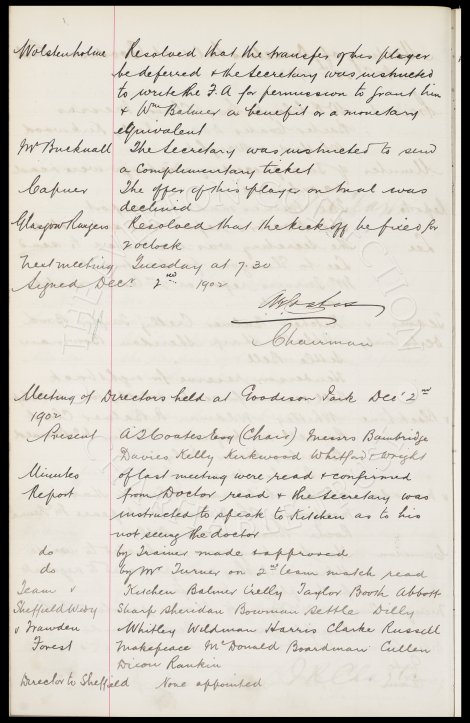 Wolstenholme Resolved that the transfer of this player
be deferred & the Secretary was instructed
to write the F.A for permission to grant him
& Wm Balmer a benefit or a monetary
equivalent
Mr Bucknall The Secretary was instructed to send
a Complimentary ticket
Capner The offer of this player on trial was
declined
Glasgow Rangers Resolved that the kick off be fixed for
2 oclock
Next meeting Tuesday at 7.30
Signed Decr 2nd 1902
Chairman
Meeting of Directors held at Goodison Park Decr 2nd
1902
Present A S Coates Esq (Chair) Messrs Bainbridge
Davies Kelly Kirkwood Whitford & Wright
Minutes of last meeting were read & confirmed
Report from Doctor read & the Secretary was
instructed to speak to Kitchen as to his
not seeing the doctor
do by Trainer made & approved
do by Mr Turner on 2nd team match read
Team v Kitchen Balmer Crelly Taylor Booth Abbott
Sheffield Wedy Sharp Sheridan Bowman Settle Dilly
v Trawden Whitley Wildman Harris Clarke Russell
Forest Makepeace McDonald Boardman Cullen
Dixon Rankin
Director to Sheffield None appointed